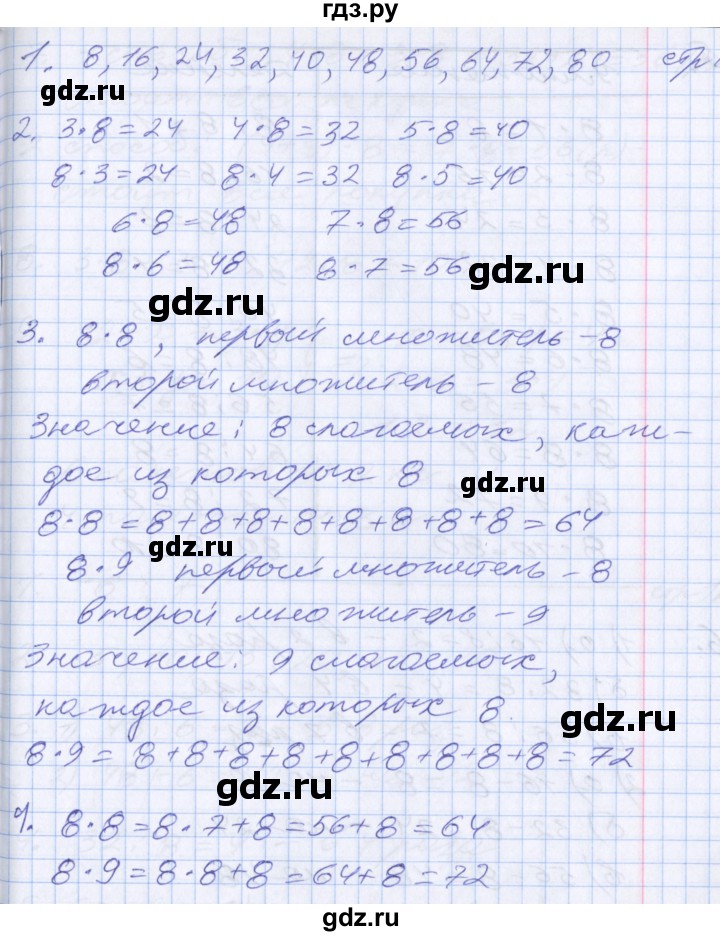 гдз.ру
1. 8, 16, 24, 32, 40, 48, 56, 64, 72, 80 стр
gdz.ru
2. 3·8=24 4·8=32 5·8=40
8·3=24 8·4=32 8·5=40
6·8=48 7·8=56
8·6=48 8·7=56 gdz.ru
gdz.ru
3. 8·8, первый множитель -8
второй множитель - 8
Значение: 8 слагаемых, каж-
дое из которых 8 gdz.ru
8·8=8+8+8+8+8+8+8+8=64
gdz.ru
8·9 первый множитель -8
второй множитель -9
Значение: 9 слагаемых,
каждое из которых 8. gdz.ru
8·9= 8+8+8+8+8+8+8+8+8=72
gdz.ru
4. 8·8=8·7+8=56+8=64
8·9=8·8+8=64+8=72
gdz.ru